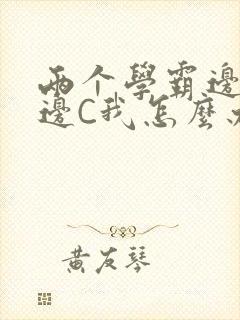 两个學霸邊
邊C我怎麼
黄友琴